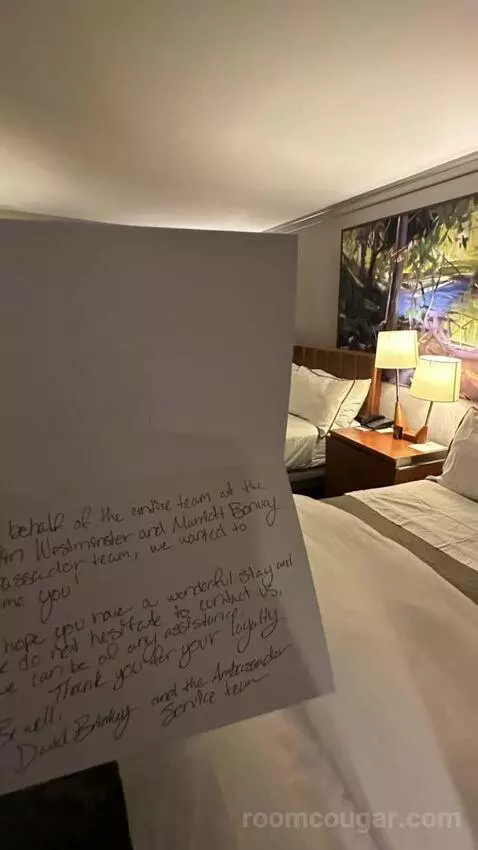 behalf of the entire team at the
Westminster and Marriott Bonvoy
bassador team, we wanted to
me you!
hope you have a wonderful stay and
do not hesitate to contact us,
we can be of any assistance.
Thank you for your loyalty.
Be well,
David and the Ambassador
Service team
roomcougar.com